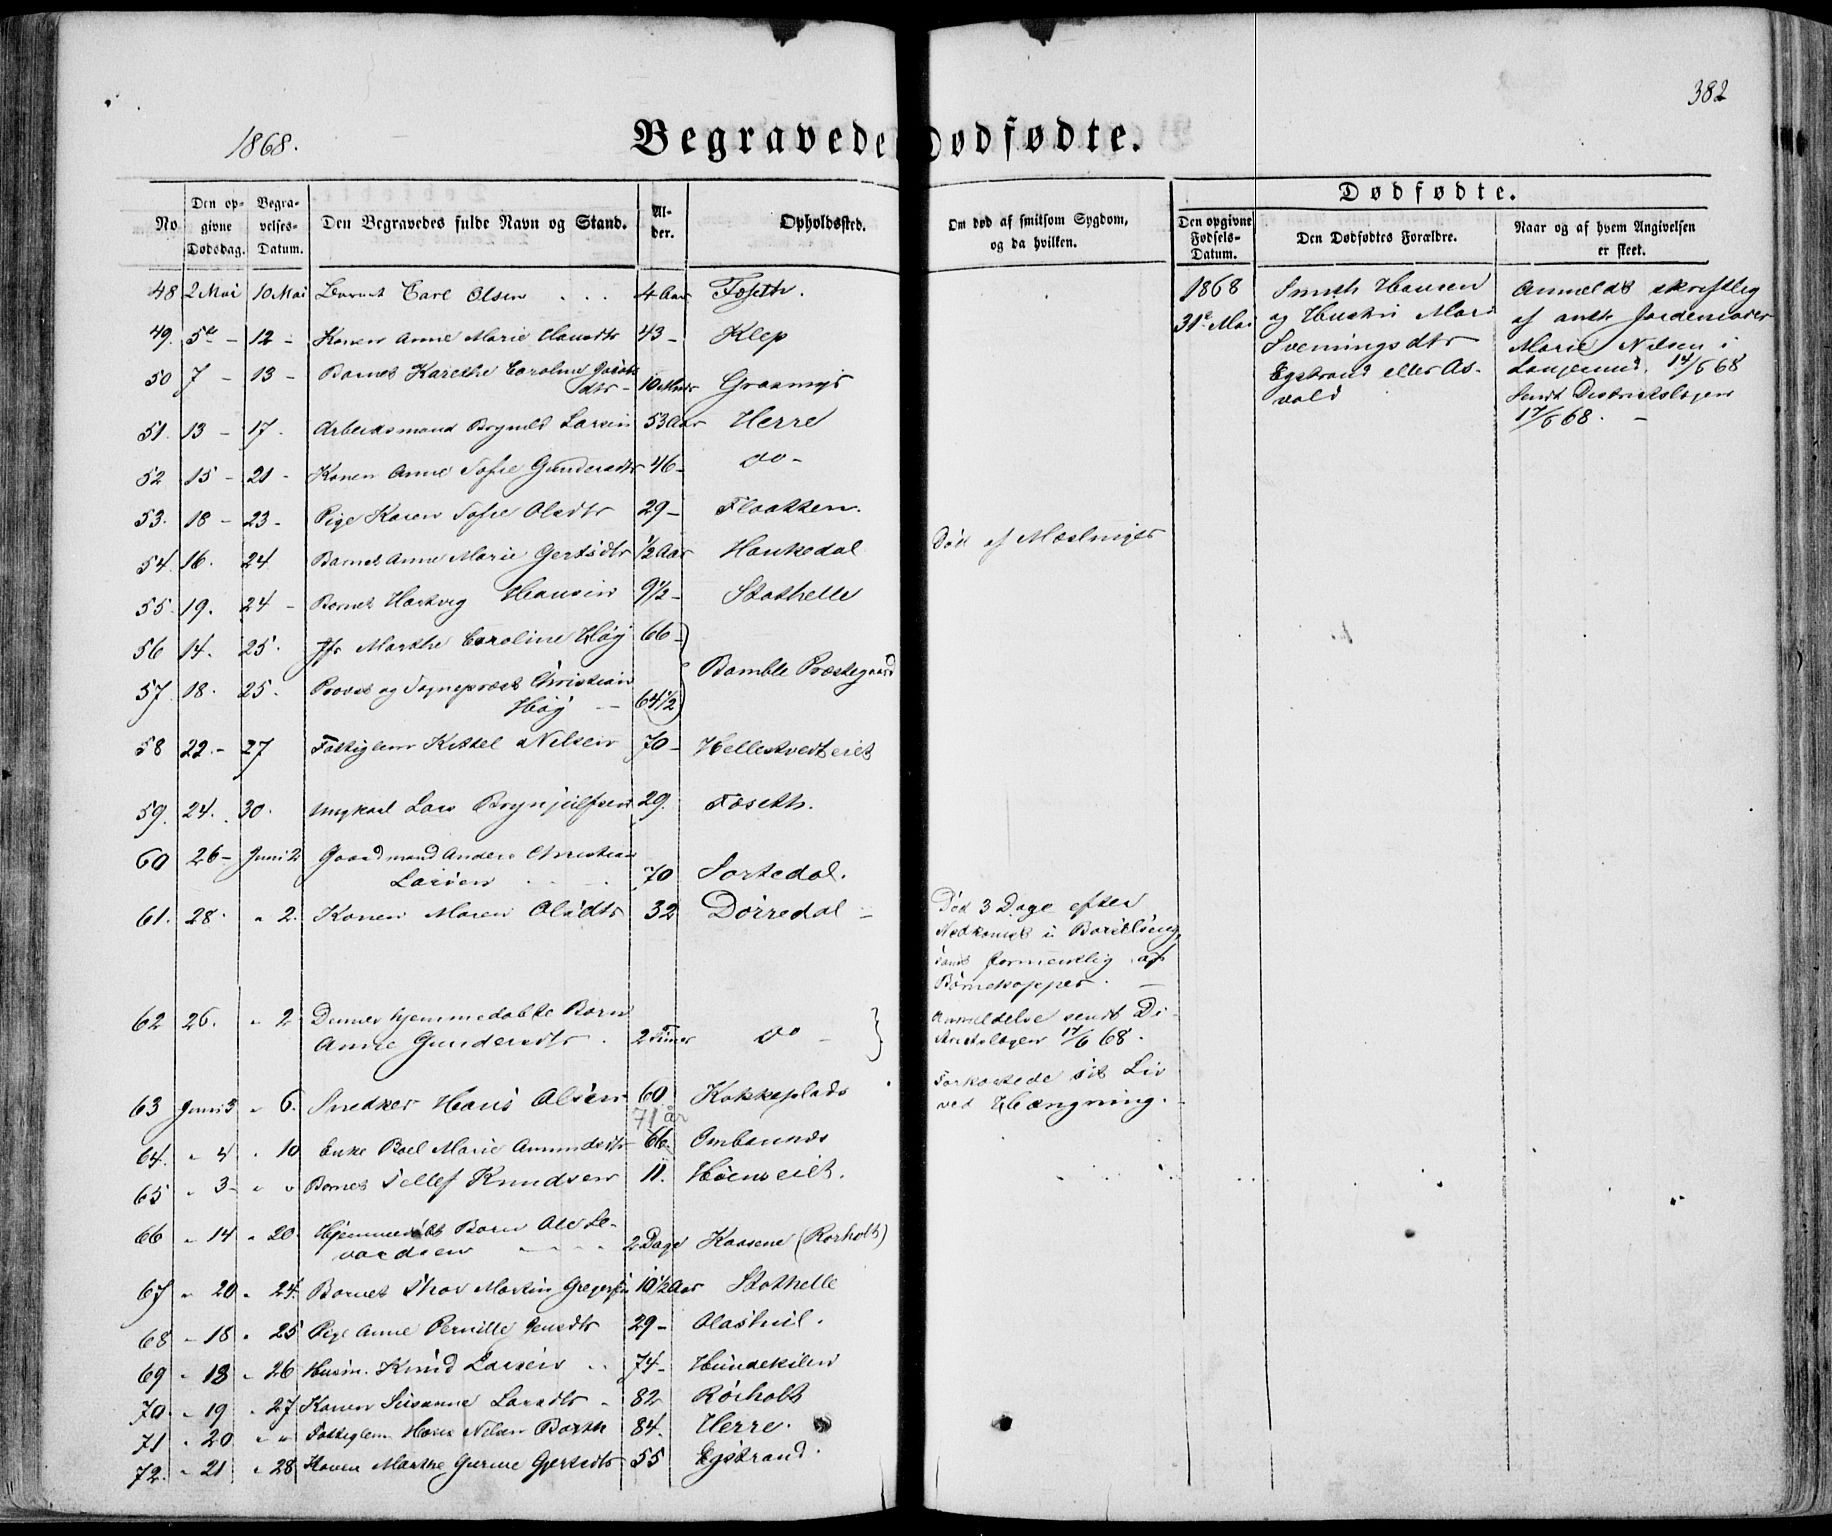 382
1868.
Begravede Dødfødte.
No
Den op-
givne
Dødsdag.
Begra-
velses-
Datum.
Den Begravedes fulde Navn og Stand.
Al-
der.
Opholdssted.
Om død af smitsom Sygdom,
og da hvilken.
Dødfødte.
Den opgivne
Fødsels-
Datum.
Den Dødfødtes Forældre.
Naar og af hvem Angivelsen
er skeet.
48 2 Mai 10 Mai Barnet Carl Olsen 4 Aar Foseth.
49. 5te - 12 - Konen Anne Marie Hansdtr 43 - Klep
50 7 - 13 - Barnet Karethe Caroline Jacobs
dtr - 10 Mndr Grasmyr
51. 13 - 17. Arbeidsmand Brynild Larsen 53 Aar Herre
52 15 - 21 - Konen Anne Sofie Gundersdtr 46 - do -
53. 18 - 23 - Pige Karen Sofie Olsdtr 29 - Flaatten.
54. 16. 24 Barnet Anne Marie Gertsdtr 1/2 Aar Haukedal Død af Mæslinger
55. 19. 24 - Barnet Hartvig Hansen 9 1/2 - Stathelle
56 14. 25. Jfr Marthe Caroline Høg 66 -
57. 18. 25. Provst og Sognepræst Christian
Høg - 64 1/2 Bamble Præstegaard
58 22. - 27 Fattiglem Kittel Nilsen 70 - Hellestvedteiet
59. 24. 30. Ungkarl Lars Brynjulfsen 29. Foseth.
60 26 - Juni 2 Gaardmand Anders Christian
Larsen 70 Sortedal.
61. 28. " 2. Konen Maren Olsdtr 32 Dørredal -
Død 3 Dage efter
Nedkomst i Barselseng,
formentlig af
Børnekopper. -
62 26. " 2 Dennes hjemmedøbte Barn
Anne Gundersdtr. 2 Timer do -
Anmeldelse sendt Di-
strictslægen 17/6 68.
63 Juni 3 " 6. Snedker Hans Olsen 60 Kokkeplads
Forkortede sit Liv
ved Hængning. -
71 år
64. " 4 " 10 Enke Boel Marie Amundsdtr 66. Ombsunds
65 " 3 - " " Barnet Tellef Knudsen 11. Høenseiet.
66 " 14 " 20. Hjemmedøbt Barn Ole Le-
vordsen 2 Dage Kaasene (Rørholt)
67 " 20 " 24. Barnet Thor Martin Gregersen 10 1/2 Aar Stathelle
68 - 18 " 25 Pige Anne Pernille Jensdtr 29 -
69 " 18 " 26 Husm. Knud Larsen 74 - Hundekilen
70. " 19 " 27 Konen Susanne Larsdtr 82 Rørholt
71 " 20 " " Fattiglem Hans Nilsen Barth 84. Herre.
72. " 21 " 28 Konen Marthe Gurine Gjertsdtr 55 Egstrand.
1868
31te Mai
Smith Hansen
og Hustru Mari
Sveningsdtr
Egstrand eller As-
vold
Anmeldt skriftlig
af ants. Jordemoder
Marie Nilsen i
Langesund. 14/6 68
Sendt Districtslægen
17/6 68. -